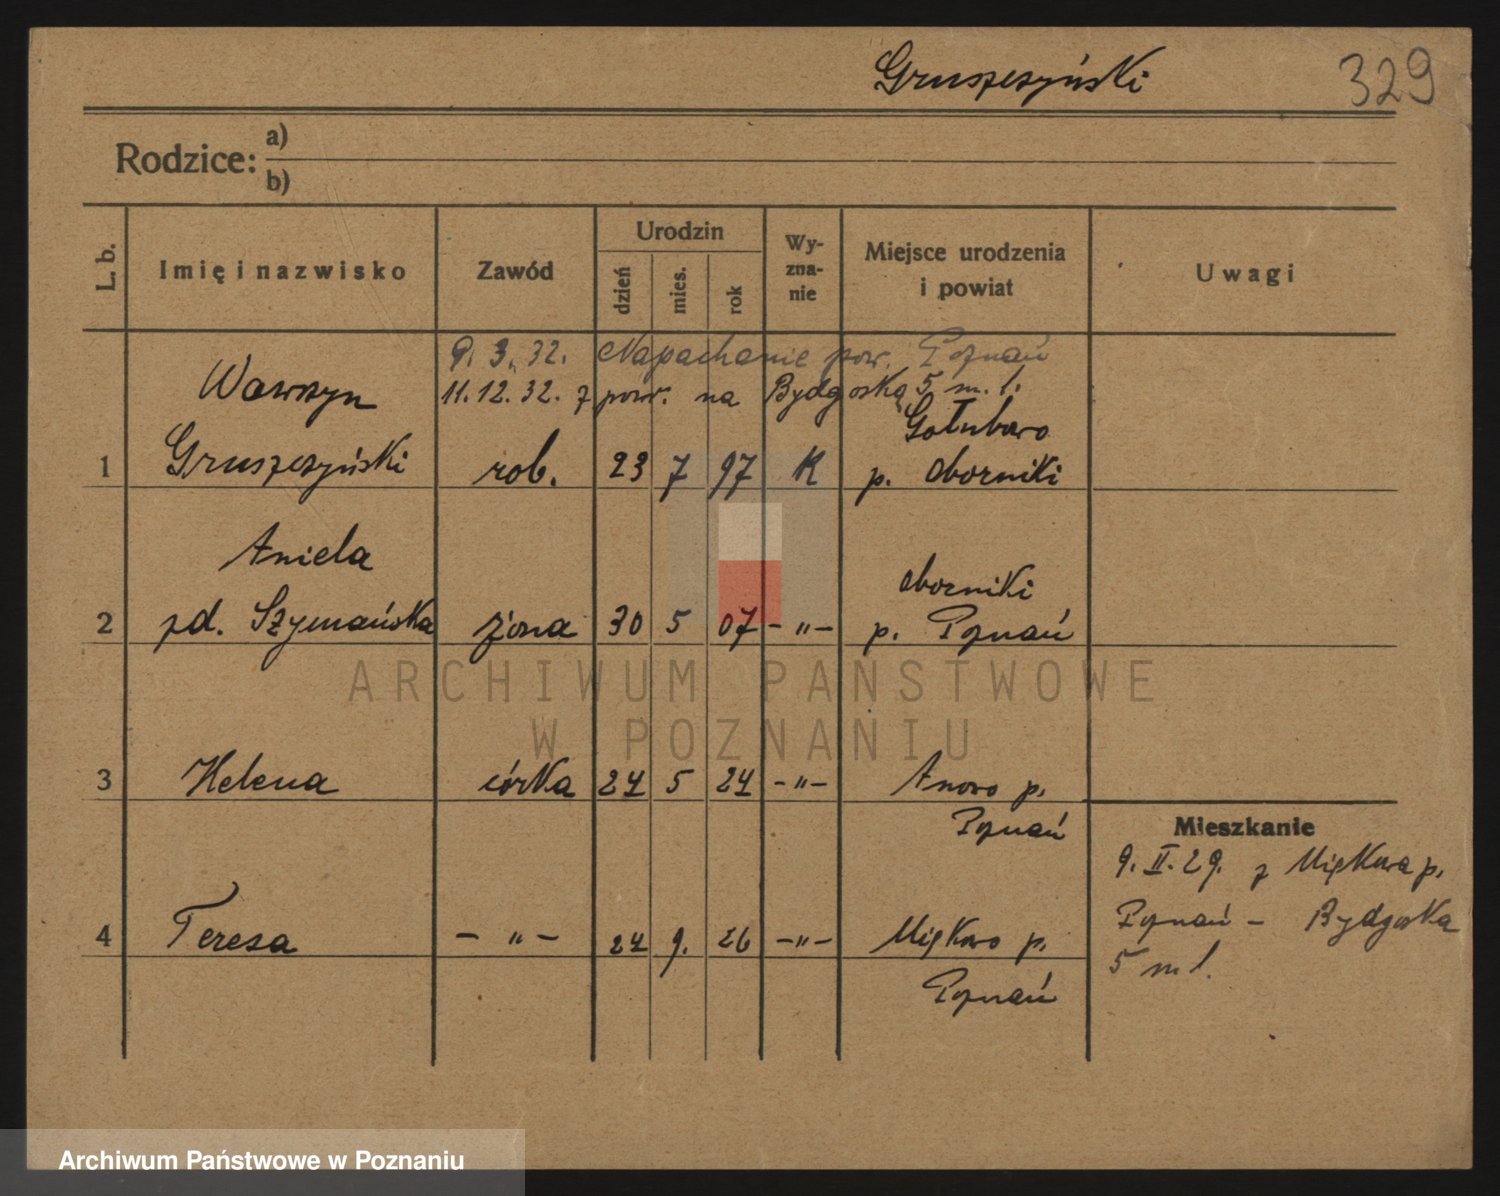 Gruszczyński 329
Rodzice: a)
b)
L. b. Imię i nazwisko Zawód Urodzin dzień mies. rok Wy-zna-nie Miejsce urodzenia i powiat Uwagi
9. 3. 32. Napachanie pow. Poznań
Wawrzyn 11. 12. 32. z pow. na Bydgoską 5 m. 1.
Gołubowo
1 Gruszczyński rob. 23 7 97 K p. Oborniki
Aniela Oborniki
2 zd. Szymańska żona 30 5 07 - " - p. Poznań
ARCHIWUM PAŃSTWOWE
W POZNANIU
3 Helena córka 24 5 24 - " - p.
Poznań
Mieszkanie
9. II. 29. z Miękowa p.
Poznań - Bydgoska
5 m 1.
4 Teresa - " - 24 9. 26 - " - Miękowo p.
Poznań
Archiwum Państwowe w Poznaniu